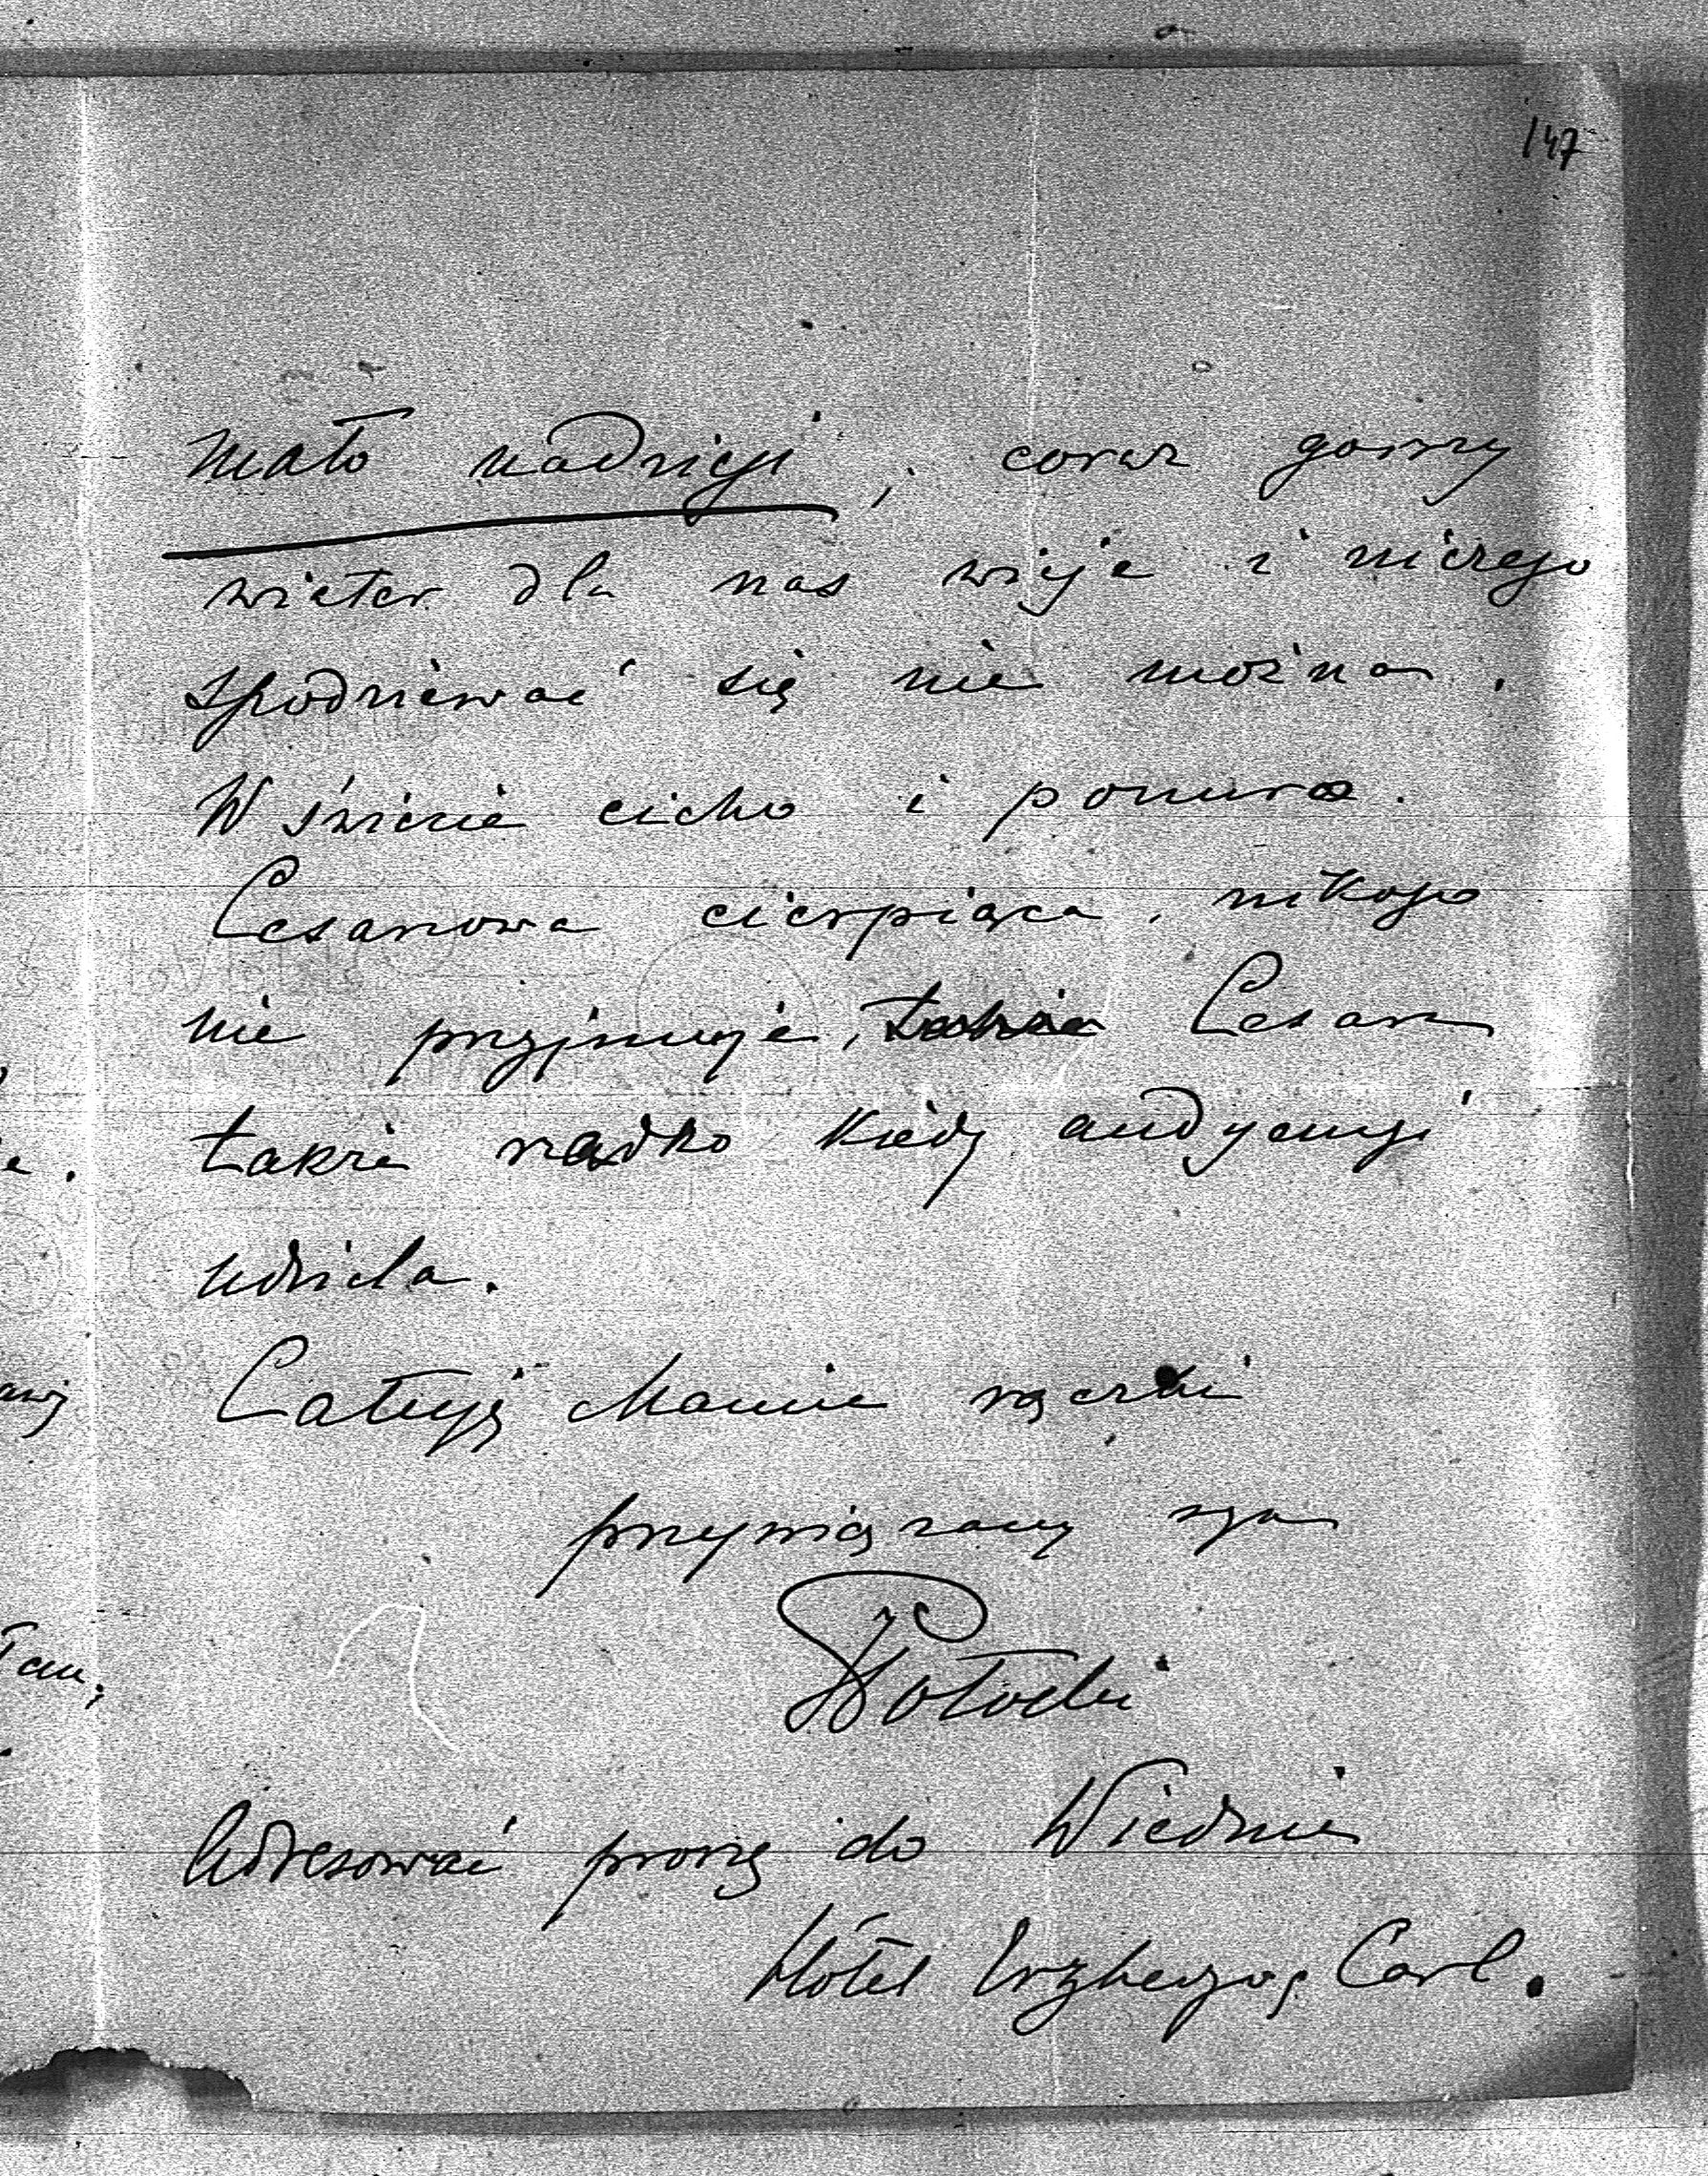 147
mało nadzieji, coraz gorszy
wieter dla nas wieje i niczego
spodziewać się nie można.
W świecie cicho i ponuro.
Cesarzowa cierpiąca, nikogo
nie przyjmuje, Cesarz
także rzadko kiedy audyencyi
udziela.
Całuję Mamie rączki
przywiązany syn
Potocki
Adresować proszę do Wiednia
Hôtel Erzherzog Carl.